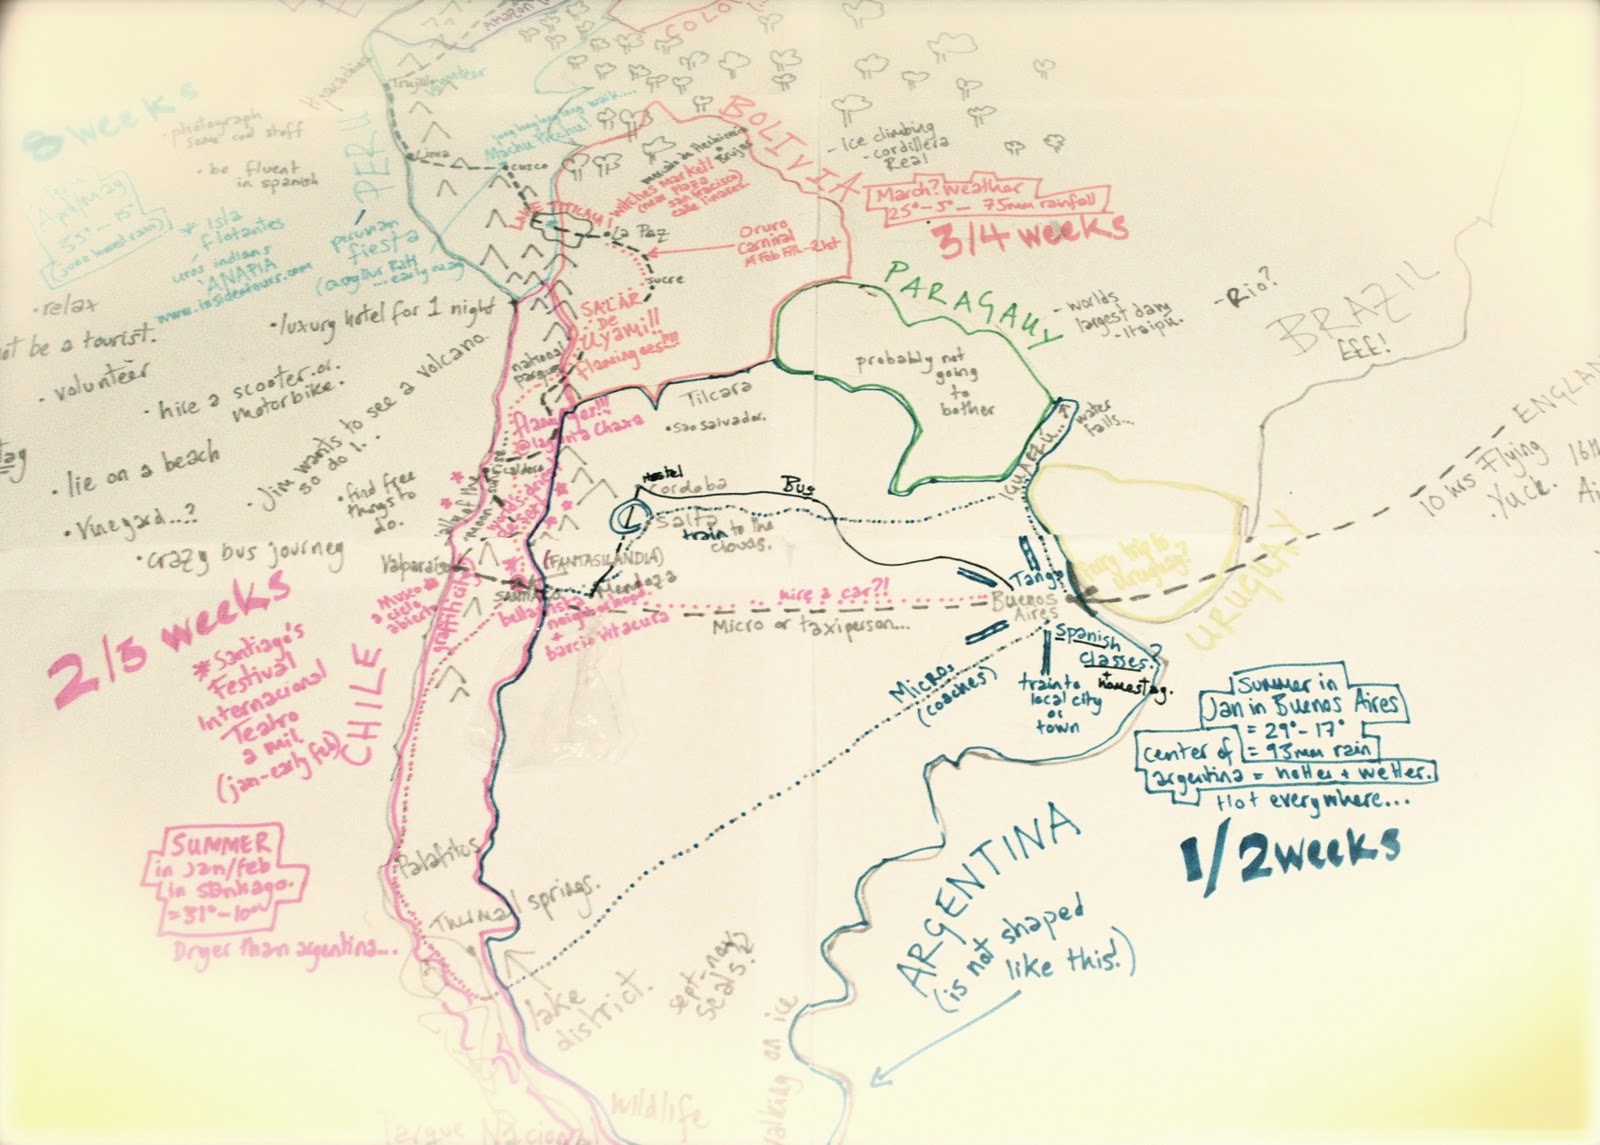 Amazon
COLO
8 weeks
photograph
some cool stuff
• be fluent
in spanish
Huacachina
PERU
Trujillo
volunteer
Lima
long long long long walk...
Machu Picchu!
cusco
April/may
* isla
flotantes
uros indians
ANAPIA
www.insidentours.com
peruvian
fiesta
... early may)
LAKE TITICACA!
La Paz
sucre
witches market!
(near Plaza
san francisco)
calle linares.
BOLIVIA
- Ice climbing
- cordillera
Real
March? weather
25°-5°- 75mm rainfall
3/4 weeks
Oruro
Carnival
SALAR
DE
UYAMI!!
flamingoes!!!
• relax
not be a tourist.
• volunteer
• luxury hotel for 1 night
• hire a scooter or
motorbike.
• Jim wants to see a volcano.
so do I...
• lie on a beach
• find free
things to
do.
• Vineyard...?
• crazy bus journey
national
parque
flamingoes!!!
@laguna Chaxa
Caldera
valley of the
moon
worlds driest
desert
Tilcara
• San Salvador.
PARAGAUY
probably not
going
to
bother
- worlds
largest dam
- Itaipu.
- Rio?
BRAZIL
£££!
water
falls...
IGUAZÚ...
ENGLAND
10 hrs Flying
. Yuck.
Hostel
cordoba
Bus
1
Salta
train to the
clouds.
(FANTASILANDIA)
Valparaiso
SANTIAGO
Mendoza
bella
neighborhood
+
barrio vitacura
hire a car?!
Micro or taxi person...
Tango
Buenos
Aires
URUGUAY
Spanish
classes.?
+
homestay.
train to
local city
or
town
Micros
(coaches)
2/3 weeks
Museo a
cielo
abierto
graffiti city
* Santiago's
Festival
Internacional
Teatro
a mil
(jan-early feb)
CHILE
SUMMER
in Jan/feb
in santiago.
=31°-10°
Dryer than argentina...
Palafitos
Thermal springs.
lake
district.
sept-nov?
seals?
wildlife
walking on ice
Parque Nacional
Summer in
Jan in Buenos Aires
= 29°-17°
= 93mm rain
center of
argentina = hotter + wetter.
Hot everywhere...
1/2 weeks
ARGENTINA
(is not shaped
like this!)